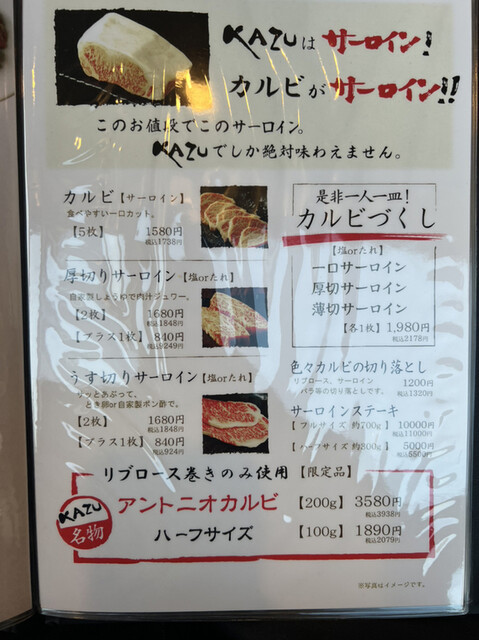 KAZUは サーロイン!
カルビが サーロイン!!
このお値段でこのサーロイン。
KAZUでしか絶対味わえません。
カルビ【サーロイン】
食べやすい一口カット。
【5枚】 1580円
税込1738円
厚切りサーロイン【塩orたれ】
自家製しょうゆで肉汁ジュワー。
【2枚】 1680円
税込1848円
【プラス1枚】 840円
税込9249円
うす切りサーロイン【塩orたれ】
サッとあぶって、
とき卵or自家製ポン酢で。
【2枚】 1680円
税込1848円
【プラス1枚】 840円
税込924円
是非一人一皿!
カルビづくし
【塩orたれ】
一口サーロイン
厚切サーロイン
薄切サーロイン
【各1枚】1,980円
税込2178円
色々カルビの切り落とし
リブロース、サーロイン
バラ等の切り落としです。
1200円
税込1320円
サーロインステーキ
【フルサイズ 約700g】 10000円
税込11000円
【ハーフサイズ 約300g】 5000円
税込5500円
リブロース巻きのみ使用【限定品】
KAZU
名物
アントニオカルビ 【200g】 3580円
税込3938円
ハーフサイズ 【100g】 1890円
税込2079円
※写真はイメージです。